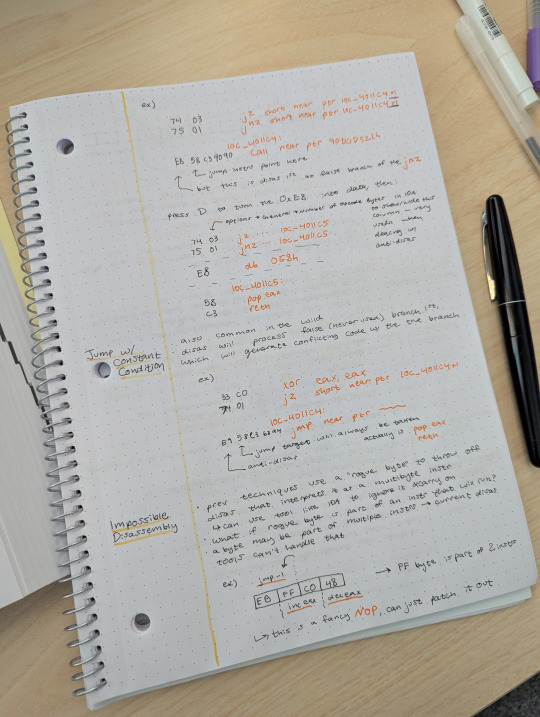 ex)
74 03 jz short near ptr loc_4011C4+1
75 01 jnz short near ptr loc_4011C4+1
loc_4011C4:
E8 58 C3 90 90 call near ptr 90D0D521h
jump instrs point here
but this is disas 1st as false branch of the jnz
press D to turn the 0xE8 into data, then:
options → general → number of opcode bytes in IDA
to show/hide this
column - very
useful when
dealing w/
anti-disas
74 03 jz ... loc_4011C5
75 01 jnz ... loc_4011C5
E8 db 0E8h
loc_4011C5:
58 pop eax
C3 retn
Jump w/
Constant
Condition
· also common in the wild
· disas will process false (never used) branch 1st,
which will generate conflicting code w/ the true branch
ex)
33 C0 xor eax, eax
74 01 jz short near ptr loc_4011C4+1
loc_4011C4:
E9 58 C3 68 94 jmp near ptr
jump target will always be taken
anti-disas
actually is: pop eax
retn
Impossible
Disassembly
· prev techniques use a "rogue byte" to throw off
disas that interprets it as a multibyte instr
↳ can use tool like IDA to ignore it & carry on
· what if rogue byte is part of an instr that will run?
· a byte may be part of multiple instrs → current disas
tools can't handle that
ex)
jmp -1
EB FF C0 48 → FF byte is part of 2 instrs
inc eax dec eax
↳ this is a fancy NOP, can just patch it out